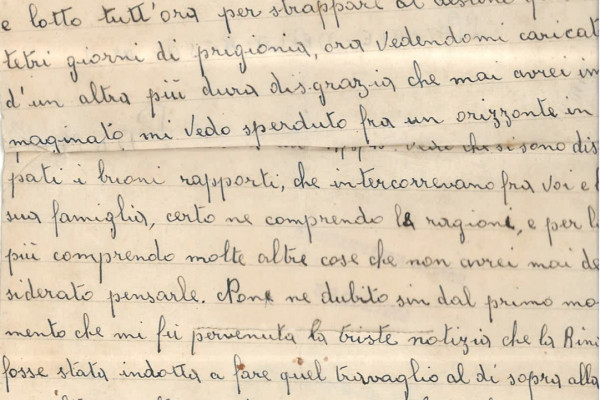 e lotto tutt'ora per strappare al destino
tetri giorni di prigionia, ora vedendomi caricat
d'un altra più dura disgrazia che mai avrei im
maginato, mi vedo sperduto fra un orizzonte in
che si sono dis
pati i buoni rapporti, che intercorrevano fra voi e l
sua famiglia, certo ne comprendo le ragioni, e per l
più comprendo molte altre cose che non avrei mai de
siderato pensarle. Non ne dubito sin dal primo mo
mento che mi fù pervenuta la triste notizia che la Rin
fosse stata indotta a fare quel travaglio al di sopra alla